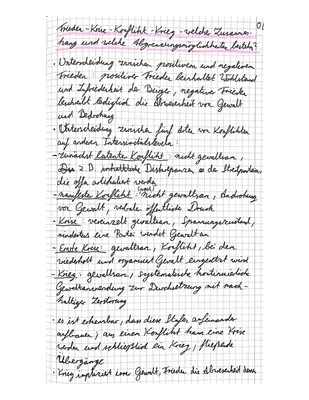 01
Frieden - Krise - Konflikt - Krieg - welche Zusammen-
hang und welche Abgrenzungsmöglichkeiten bestehn?
• Unterscheidung zwischen positivem und negativem
Frieden: positiver Frieden beinhaltet Wohlstand
und Zufriedenheit der Bürger, negativer Frieden
beinhaltet lediglich die Abwesenheit von Gewalt
und Bedrohung
• Unterscheidung zwischen fünf Arten von Konflikten
auf anderen Intensitätslevels
- zunächst latente Konflikt: nicht gewaltsam,
z.B. Diskrepanzen in den
die offen artikuliert werden
- manifeste Konflikt: (noch) nicht gewaltsam, Androhung
von Gewalt, verbale öffentliche Druck
- Krise: vereinzelt gewaltsam, Spannungszustand,
mindestens eine Partei wendet Gewalt an
- Ernste Krise: gewaltsam, Konflikt, bei dem
wiederholt und organisiert Gewalt eingesetzt wird
- Krieg: gewaltsam, systematische kontinuierliche
Gewaltanwendung zur Durchsetzung mit nach-
haltiger Zerstörung
• es ist erkennbar, dass diese Stufen aufeinander
aufbauen; aus einem Konflikt kann eine Krise
werden und schließlich ein Krieg, fließende
Übergänge
• Krieg impliziert immer Gewalt, Frieden die Abwesenheit davon